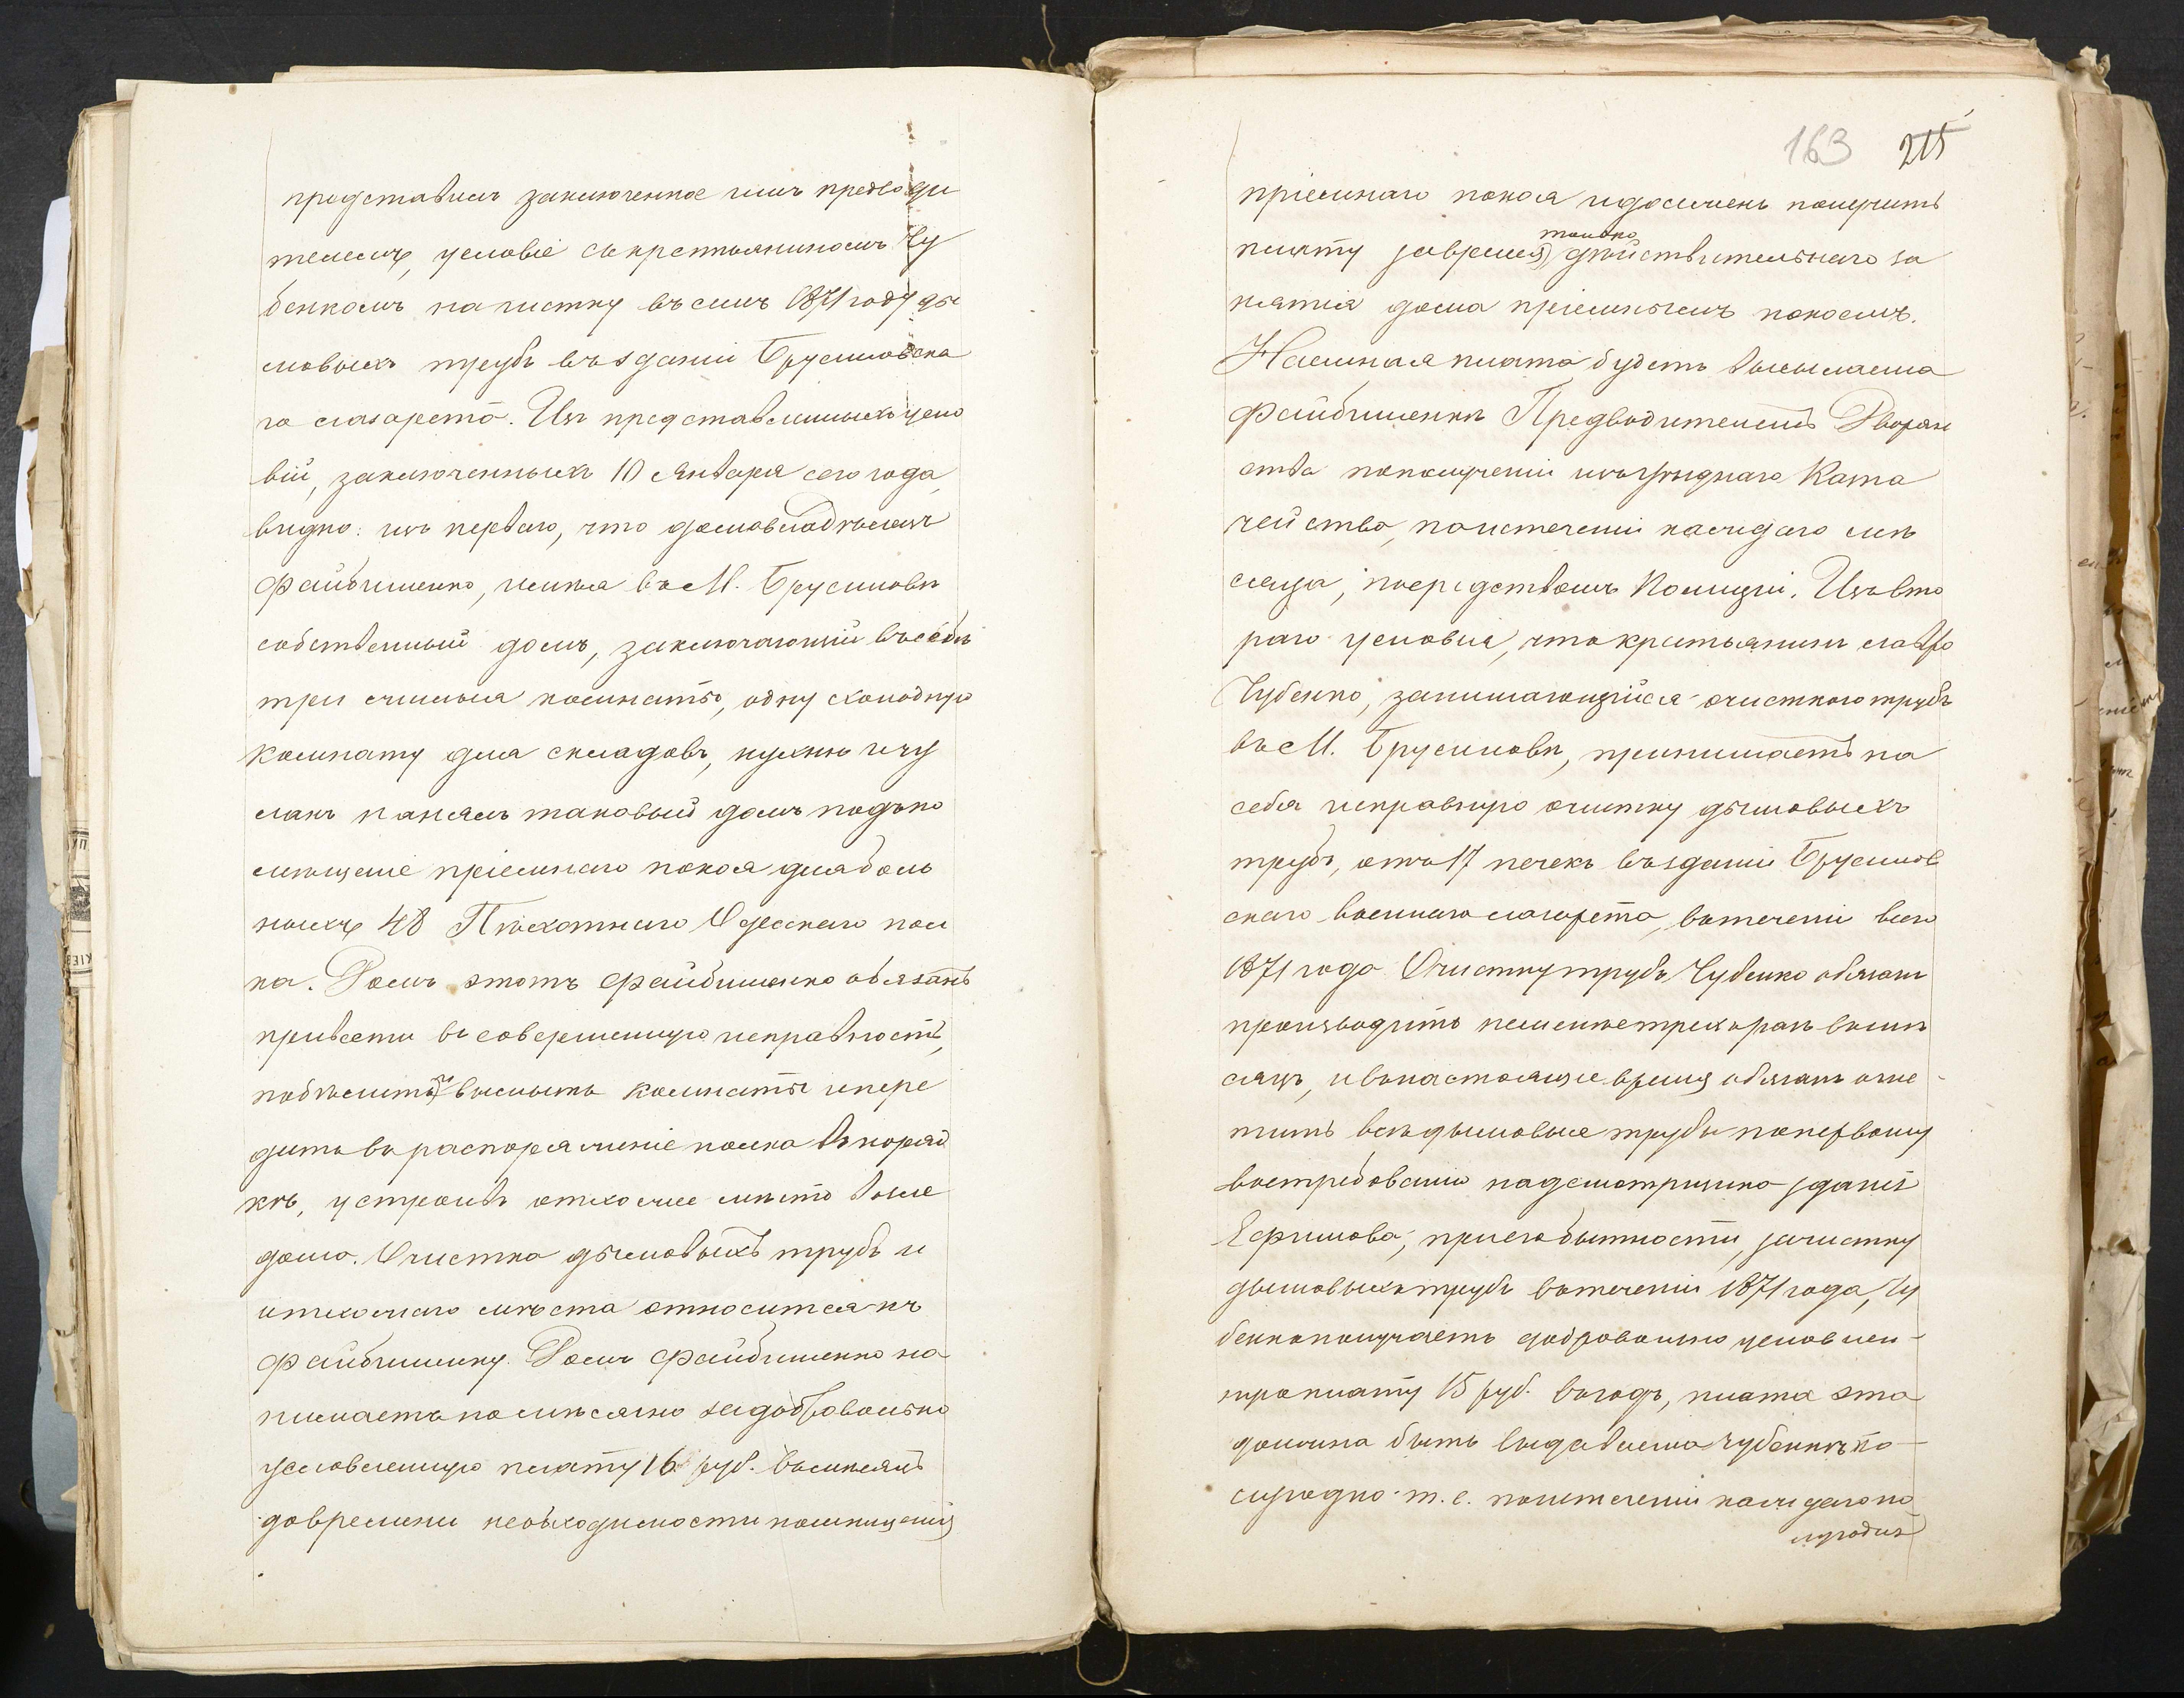 представилъ заключенное имъ предводи
телемъ, условіе съ крестьяниномъ Чу
бенкомъ на чистку въ семъ 1871 году ды
мовыхъ трубъ въ зданіи Брусиловска
го лазарета. Изъ представленныхъ усло
вій, заключенныхъ 10 Января сего года,
видно: изъ перваго, что домовладѣлецъ
Файбишенко, имѣя въ М. Брусиловѣ
собственный домъ, заключающій въ себѣ
три жилыя комнаты, одну холодную
комнату для складовъ, кухню и чу
ланъ нанялъ таковый домъ подъ по
мѣщеніе пріемнаго покоя для боль
ныхъ 48 Пѣхотнаго Одесскаго пол
ка. Домъ этотъ Файбишенко обязанъ
привести въ совершенную исправность,
побѣлить внутри комнаты и пере
дать въ распоряженіе полка въ поряд
кѣ, устроивъ отхожее мѣсто возле
дома. Очистка дымовыхъ трубъ и
отхожаго мѣста относится къ
Файбишенку. Домъ Файбишенко на
нимаетъ помѣсячно за добровольно
условленную плату 16 руб. въ мѣсяцъ
до времени необходимости помѣщенія
163 215
пріемнаго покоя и долженъ получить
плату за время только дѣйствительнаго за
нятія дома пріемнымъ покоемъ.
Наемная плата будетъ высылаема
Файбишенкѣ Предводителемъ Дворян
ства по полученіи изъ уѣзднаго Казна
чейства, по истеченіи каждаго мѣ
сяца, посредствомъ Полиціи. Изъ вто
раго условія, что крестьянинъ Лавро
Чубенко, занимающійся очисткою трубъ
въ М. Брусиловѣ, принимаетъ на
себя исправную очистку дымовыхъ
трубъ, отъ 17 печекъ въ зданіи Брусилов
скаго военнаго лазарета, въ теченіи всего
1871 года. Очистку трубъ Чубенко обязанъ
производить не менѣе трехъ разъ въ мѣ
сяцъ, и въ настоящее время обязанъ очис
тить всѣ дымовые трубы по первому
востребованію надсмотрщика зданія
Ефимова, при его бытности, за чистку
дымовыхъ трубъ въ теченіи 1871 года, Чу
бенко получаетъ добровольно условлен-
ную плату 15 руб. въ годъ, плата эта
должна быть выдаваема Чубенкѣ по
лугодно т. е. по истеченіи каждаго по
лугодія